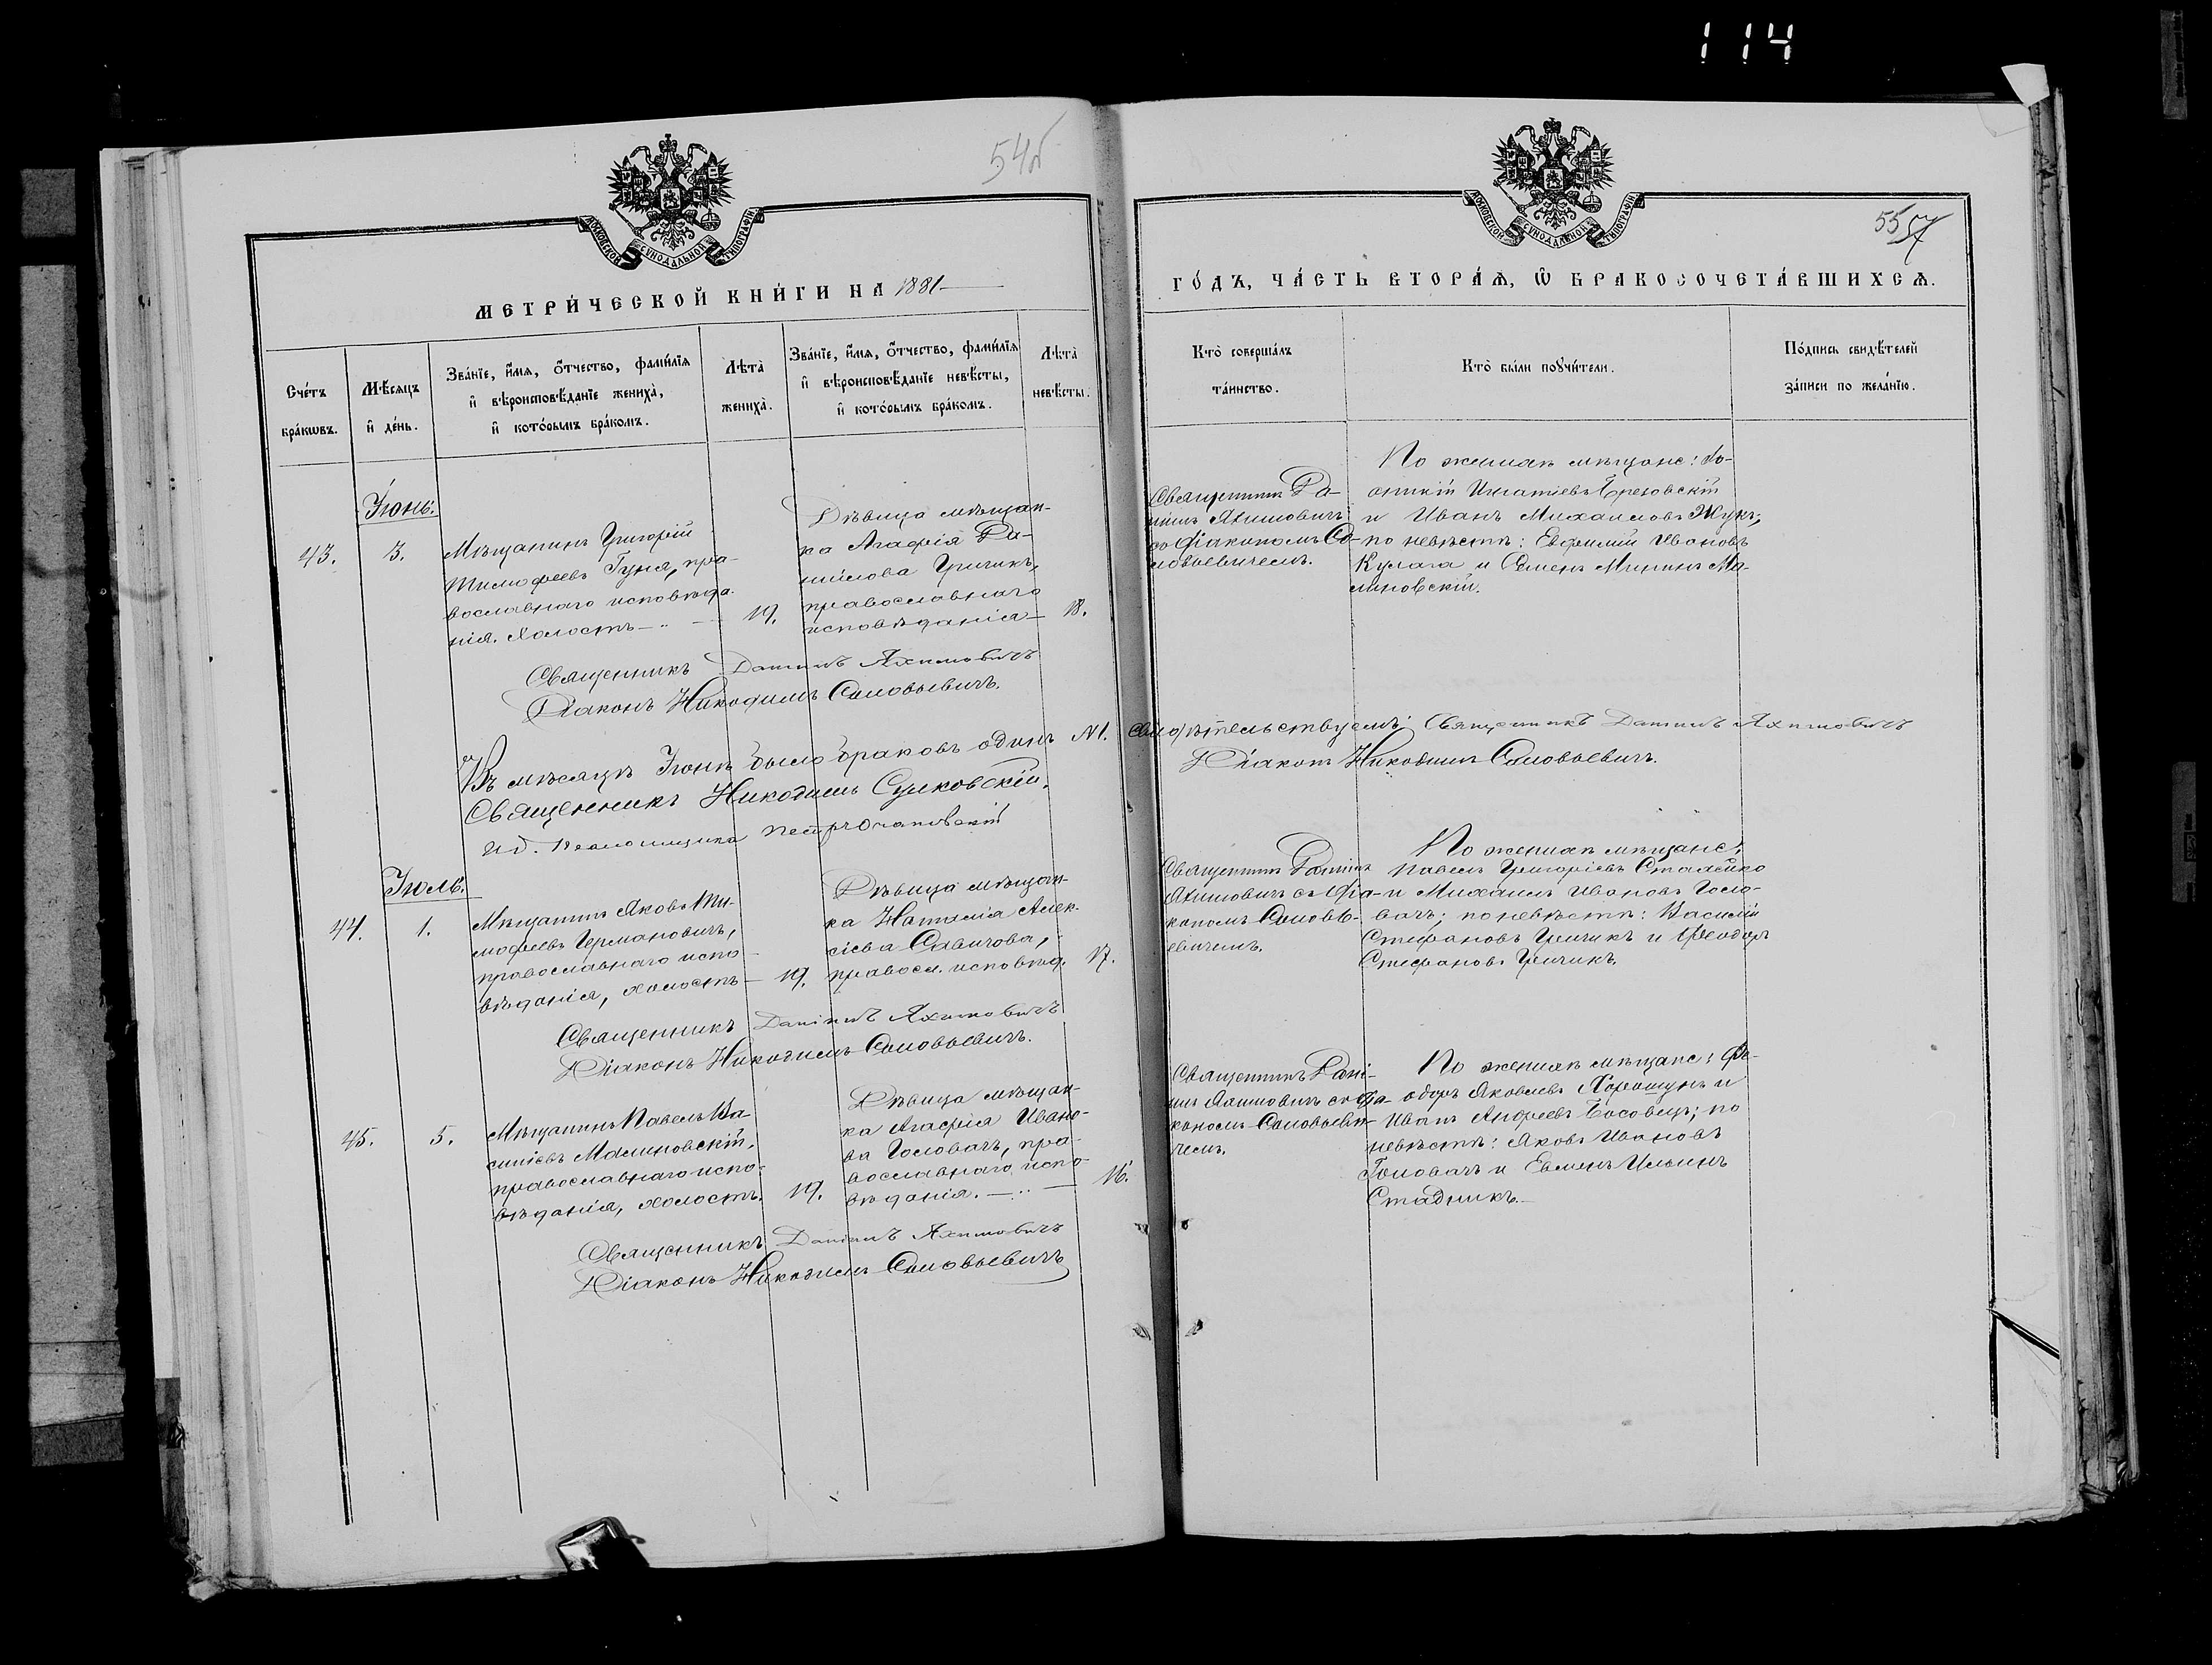 114
54 об
МОСКОВСКОЙ СѴНОДАЛЬНОЙ ТИПОГРАФІИ
МЕТРИ́ЧЕСКОЙ КНИ́ГИ НА 1881
Сче́тъ бра́кѡвъ.
Мѣ́сяцъ и҆ де́нь.
Зва́нїе, и҆́мѧ, ѻ҆́тчество, фами́лїѧ
и҆ вѣроисповѣ́данїе жениха̀,
и҆ кото́рымъ бра́комъ.
Лѣта̀ жениха̀.
Зва́нїе, и҆́мѧ, ѻ҆́тчество, фами́лїѧ
и҆ вѣроисповѣ́данїе невѣ́сты,
и҆ кото́рымъ бра́комъ.
Лѣта̀ невѣ́сты.
Іюнь.
43.
3.
Мѣщанинъ Григорій
Тимофеевъ Гуня, пра-
вославнаго исповѣда-
нія. Холостъ —
19.
Дѣвица мѣщан-
ка Агафія Да-
ніилова Гричикъ,
православнаго
исповѣданія —
18.
Священникъ Даніилъ Яхимовичъ
Діаконъ Никодимъ Соловьевичъ.
Въ мѣсяцѣ Іюнѣ было браковъ одинъ №1.
Священникъ Никодимъ Сулковскій.
И.д. Псаломщика Петръ Очаповскій
Іюль.
44.
1.
Мѣщанинъ Яковъ Ти-
мофеевъ Германовичъ,
православнаго испо-
вѣданія, холостъ —
19.
Дѣвица мѣщан-
ка Наталія Алек-
сіева Савичова,
правосл. исповѣд.
17.
Священникъ Даніилъ Яхимовичъ
Діаконъ Никодимъ Соловьевичъ.
45.
5.
Мѣщанинъ Павелъ Ва-
силіевъ Малиновскій,
православнаго испо-
вѣданія, холостъ.
19.
Дѣвица мѣщан-
ка Агафія Ивано-
ва Головачъ, пра-
вославнаго испо-
вѣданія. —
16.
Священникъ Даніилъ Яхимовичъ
Діаконъ Никодимъ Соловьевичъ
55 57
МОСКОВСКОЙ СѴНОДАЛЬНОЙ ТИПОГРАФІИ
ГО́ДЪ, ЧА́СТЬ ВТОРА́Ѧ, Ѽ БРАКОСОЧЕТА́ВШИХСѦ.
Кто̀ соверша́лъ
та́инство.
Кто̀ бы́ли поꙋчи́тели.
По́дпись свидѣ́телей
за́писи по жела́нїю.
Священникъ Да-
ніилъ Яхимовичъ
со діакономъ Со-
ловьевичемъ.
По женихѣ мѣщане:
Игнатіевъ Брезовскій
и Иванъ Михаиловъ Жукъ;
по невѣстѣ: Евфимій Ивановъ
Кулага и Семенъ Мининъ Ма-
линовскій.
свидѣтельствуемъ: Священникъ Даніилъ Яхимовичъ
Діаконъ Никодимъ Соловьевичъ.
Священникъ Даніилъ
Яхимовичъ съ діа-
кономъ Соловь-
евичемъ.
По женихѣ мѣщане:
Павелъ Григоріевъ Стахейко
и Михаилъ Ивановъ Голо-
вачъ; по невѣстѣ: Василій
Стефановъ Гричикъ и Феодоръ
Стефановъ Гричикъ.
Священникъ Дані-
илъ Яхимовичъ со діа-
кономъ Соловьеви-
чемъ.
По женихѣ мѣщане: Фе-
одоръ Яковлевъ Хорошунъ и
Иванъ Андреевъ Босовецъ; по
невѣстѣ: Яковъ Ивановъ
Головачъ и Евменъ Ильинъ
Стадникъ. —